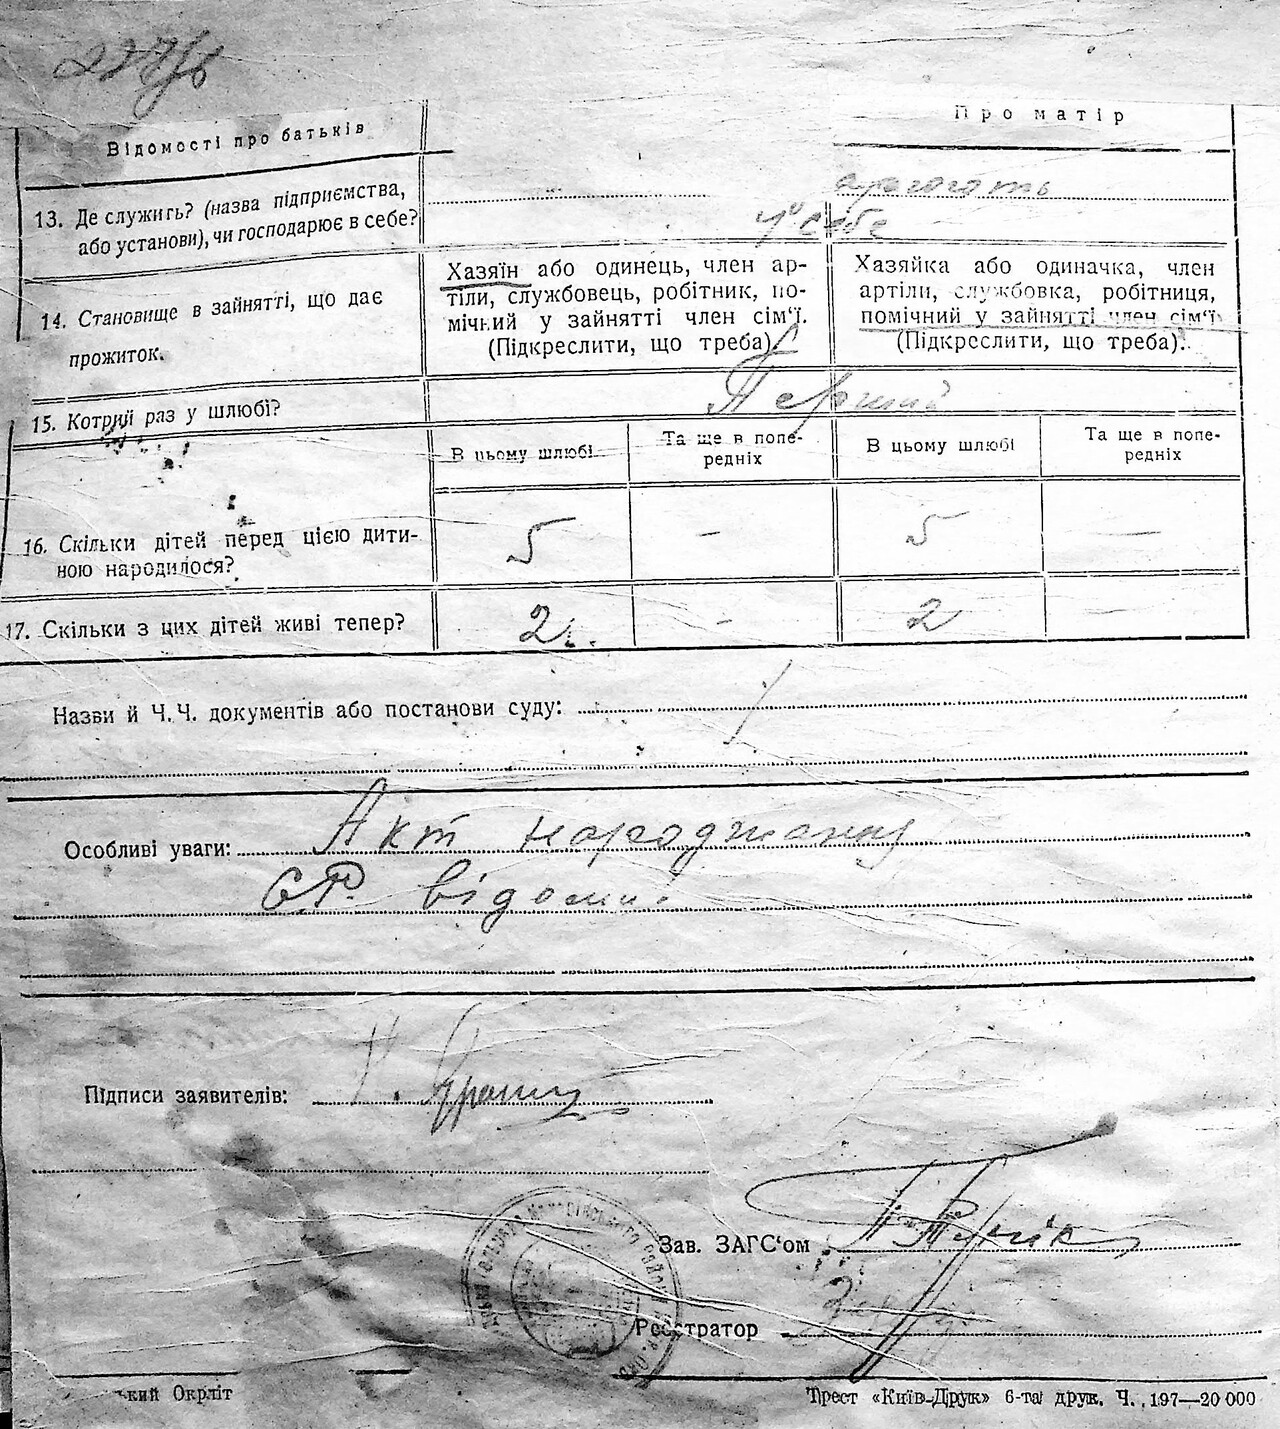 Відомості про батьків
Про матір
13. Де служить? (назва підприємства,
або установи), чи господарює в себе?
у себе
14. Становище в зайнятті, що дає
прожиток.
Хазяїн або одинець, член ар-
тіли, службовець, робітник, по-
мічний у зайнятті член сім'ї.
(Підкреслити, що треба).
Хазяйка або одиначка, член
артіли, службовка, робітниця,
помічний у зайнятті член сім'ї
(Підкреслити, що треба).
15. Котрий раз у шлюбі?
Перший
В цьому шлюбі
Та ще в попе-
редніх
В цьому шлюбі
Та ще в попе-
редніх
16. Скільки дітей перед цією дити-
ною народилося?
5 – 5 –
17. Скільки з цих дітей живі тепер?
2 - 2 –
Назви й Ч.Ч. документів або постанови суду:
Особливі уваги: Акт народження
С.Р. відомий
Підписи заявителів:
Зав. ЗАГС'ом
Реєстратор
кий Окрліт
Трест «Київ-Друк» 6-та друк. Ч. 197—20 000